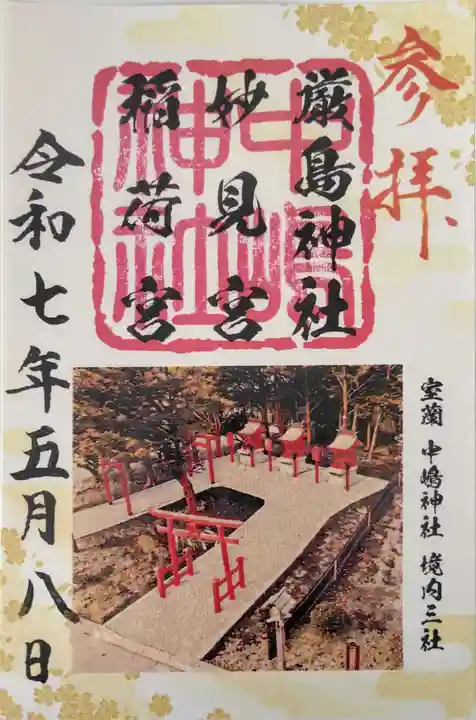 参拝
厳島神社
妙見宮
稲荷宮
中嶋神社
令和七年五月八日
室蘭 中嶋神社 境内三社